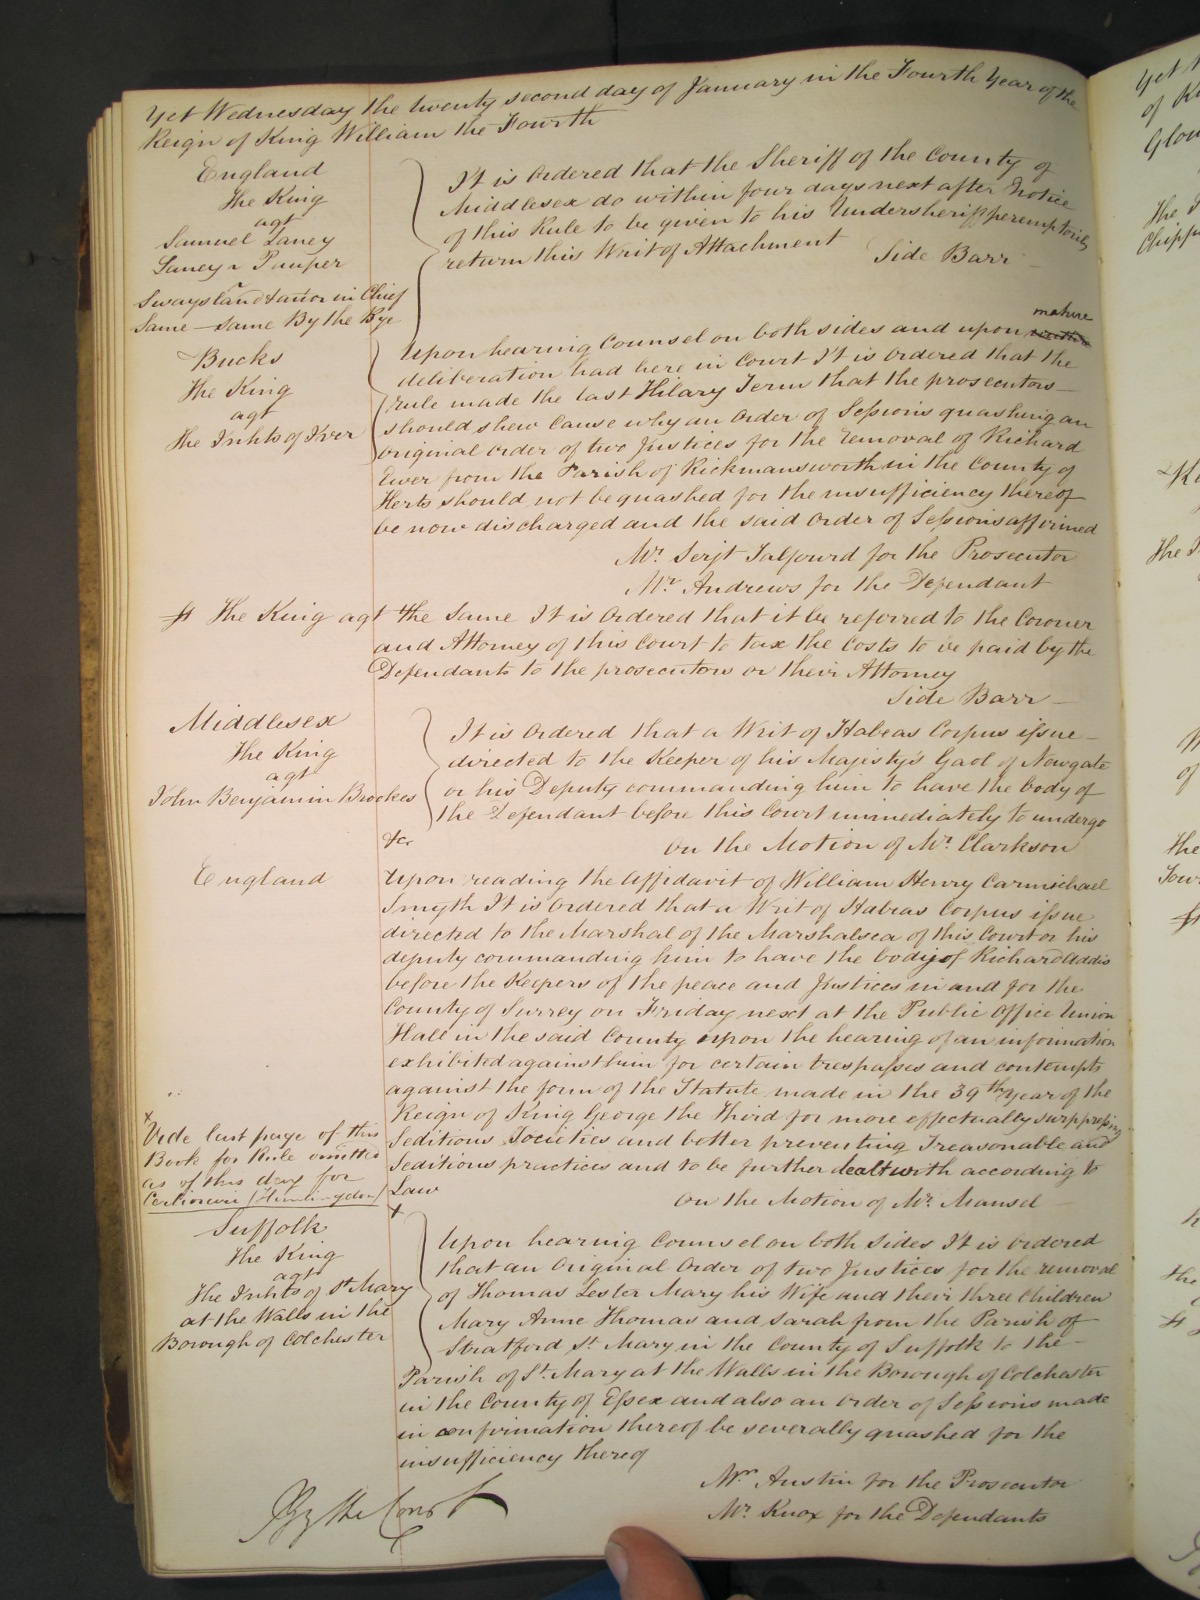 Yet Wednesday the twenty second day of January in the Fourth Year of the
Reign of King William the Fourth
England
The King
agt
Samuel Laney
Laney a Pauper
Swaysland & anor in Chief
Same — Same By the Bye
It is Ordered that the Sheriff of the County of
Middlesex do within four days next after Notice
of this Rule to be given to his Undersheriff peremptorily
return this Writ of Attachment Side Barr
Bucks
The King
agt
The Inhts of Iver
mature
Upon hearing Counsel on both sides and upon
deliberation had here in Court It is Ordered that the
rule made the last Hilary Term that the prosecutors
should shew Cause why an Order of Sessions quashing an
original order of two Justices for the removal of Richard
Ewer from the Parish of Rickmansworth in the County of
Herts should not be quashed for the insufficiency thereof
be now discharged and the said Order of Sessions affirmed
Mr. Serjt Talfourd for the Prosecutor
Mr. Andrews for the Defendant
The King agt the Same It is Ordered that it be referred to the Coroner
and Attorney of this Court to tax the Costs to be paid by the
Defendants to the prosecutors or their Attorney
Side Barr
Middlesex
The King
agt
John Benjamin Brookes
It is Ordered that a Writ of Habeas Corpus issue
directed to the Keeper of his Majesty's Gaol of Newgate
or his Deputy commanding him to have the body of
the Defendant before this Court immediately to undergo
&c. On the Motion of Mr. Clarkson
England
Upon reading the Affidavit of William Henry Carmichael
Smyth It is Ordered that a Writ of Habeas Corpus issue
directed to the Marshal of the Marshalsea of this Court or his
deputy commanding him to have the body of Richard Addis
before the Keepers of the peace and Justices in and for the
County of Surrey on Friday next at the Public Office Union
Hall in the said County upon the hearing of an information
exhibited against him for certain trespasses and contempts
against the form of the Statute made in the 39th Year of the
Reign of King George the Third for more effectually suppressing
Seditious Societies and better preventing Treasonable and
Seditious practices and to be further dealt with according to
Law On the Motion of Mr. Mansel
x
Vide last page of this
Book for Rule omitted
as of this day for
Certiorari (Huntingdon)
x
Suffolk
The King
agt
The Inhts of St. Mary
at the Walls in the
Borough of Colchester
Upon hearing Counsel on both Sides It is ordered
that an Original Order of two Justices for the removal
of Thomas Lester Mary his Wife and their three Children
Mary Anne Thomas and Sarah from the Parish of
Stratford St. Mary in the County of Suffolk to the
Parish of St. Mary at the Walls in the Borough of Colchester
in the County of Essex and also an Order of Sessions made
in confirmation thereof be severally quashed for the
insufficiency thereof
Mr. Austin for the Prosecutor
Mr. Knox for the Defendants
By the Court